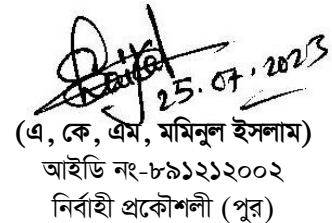 25.07.2023
(এ, কে, এম, মমিনুল ইসলাম)
আইডি নং-৮৯১২১২০০২
নির্বাহী প্রকৌশলী (পুর)